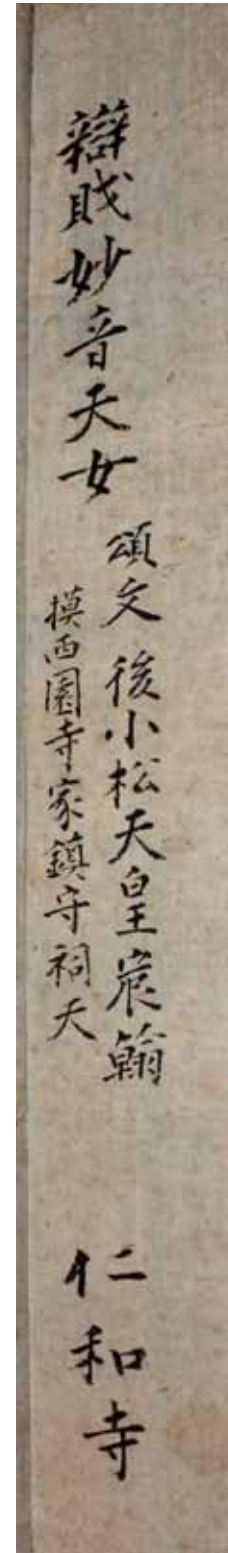 辯戝妙音天女
頌文 後小松天皇宸翰
摸西園寺家鎮守祠天
仁和寺